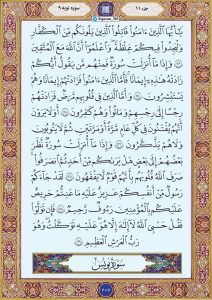 جزء ۱۱
سوره توبه ۹
یَـٰٓأَیُّهَا ٱلَّذِینَ ءَامَنُوا۟ قَـٰتِلُوا۟ ٱلَّذِینَ یَلُونَكُم مِّنَ ٱلْكُفَّارِ
وَلْیَجِدُوا۟ فِیكُمْ غِلْظَةً وَٱعْلَمُوٓا۟ أَنَّ ٱللَّهَ مَعَ ٱلْمُتَّقِینَ
وَإِذَا مَآ أُنزِلَتْ سُورَةٌ فَمِنْهُم مَّن یَقُولُ أَیُّكُمْ
زَادَتْهُ هَـٰذِهِۦٓ إِیمَـٰنًا فَأَمَّا ٱلَّذِینَ ءَامَنُوا۟ فَزَادَتْهُمْ إِیمَـٰنًا وَهُمْ
یَسْتَبْشِرُونَ وَأَمَّا ٱلَّذِینَ فِی قُلُوبِهِم مَّرَضٌ فَزَادَتْهُمْ
رِجْسًا إِلَىٰ رِجْسِهِمْ وَمَاتُوا۟ وَهُمْ كَـٰفِرُونَ أَوَلَا یَرَوْنَ
أَنَّهُمْ یُفْتَنُونَ فِی كُلِّ عَامٍ مَّرَّةً أَوْ مَرَّتَیْنِ ثُمَّ لَا یَتُوبُونَ
وَلَا هُمْ یَذَّكَّرُونَ وَإِذَا مَآ أُنزِلَتْ سُورَةٌ نَّظَرَ
بَعْضُهُمْ إِلَىٰ بَعْضٍ هَلْ یَرَىٰكُم مِّنْ أَحَدٍ ثُمَّ ٱنصَرَفُوا۟
صَرَفَ ٱللَّهُ قُلُوبَهُم بِأَنَّهُمْ قَوْمٌ لَّا یَفْقَهُونَ لَقَدْ جَآءَكُمْ
رَسُولٌ مِّنْ أَنفُسِكُمْ عَزِیزٌ عَلَیْهِ مَا عَنِتُّمْ حَرِیصٌ
عَلَیْكُم بِٱلْمُؤْمِنِینَ رَءُوفٌ رَّحِیمٌ فَإِن تَوَلَّوْا۟
فَقُلْ حَسْبِیَ ٱللَّهُ لَآ إِلَـٰهَ إِلَّا هُوَ عَلَیْهِ تَوَكَّلْتُ وَهُوَ
رَبُّ ٱلْعَرْشِ ٱلْعَظِیمِ
سورة یونس
۲۰۷